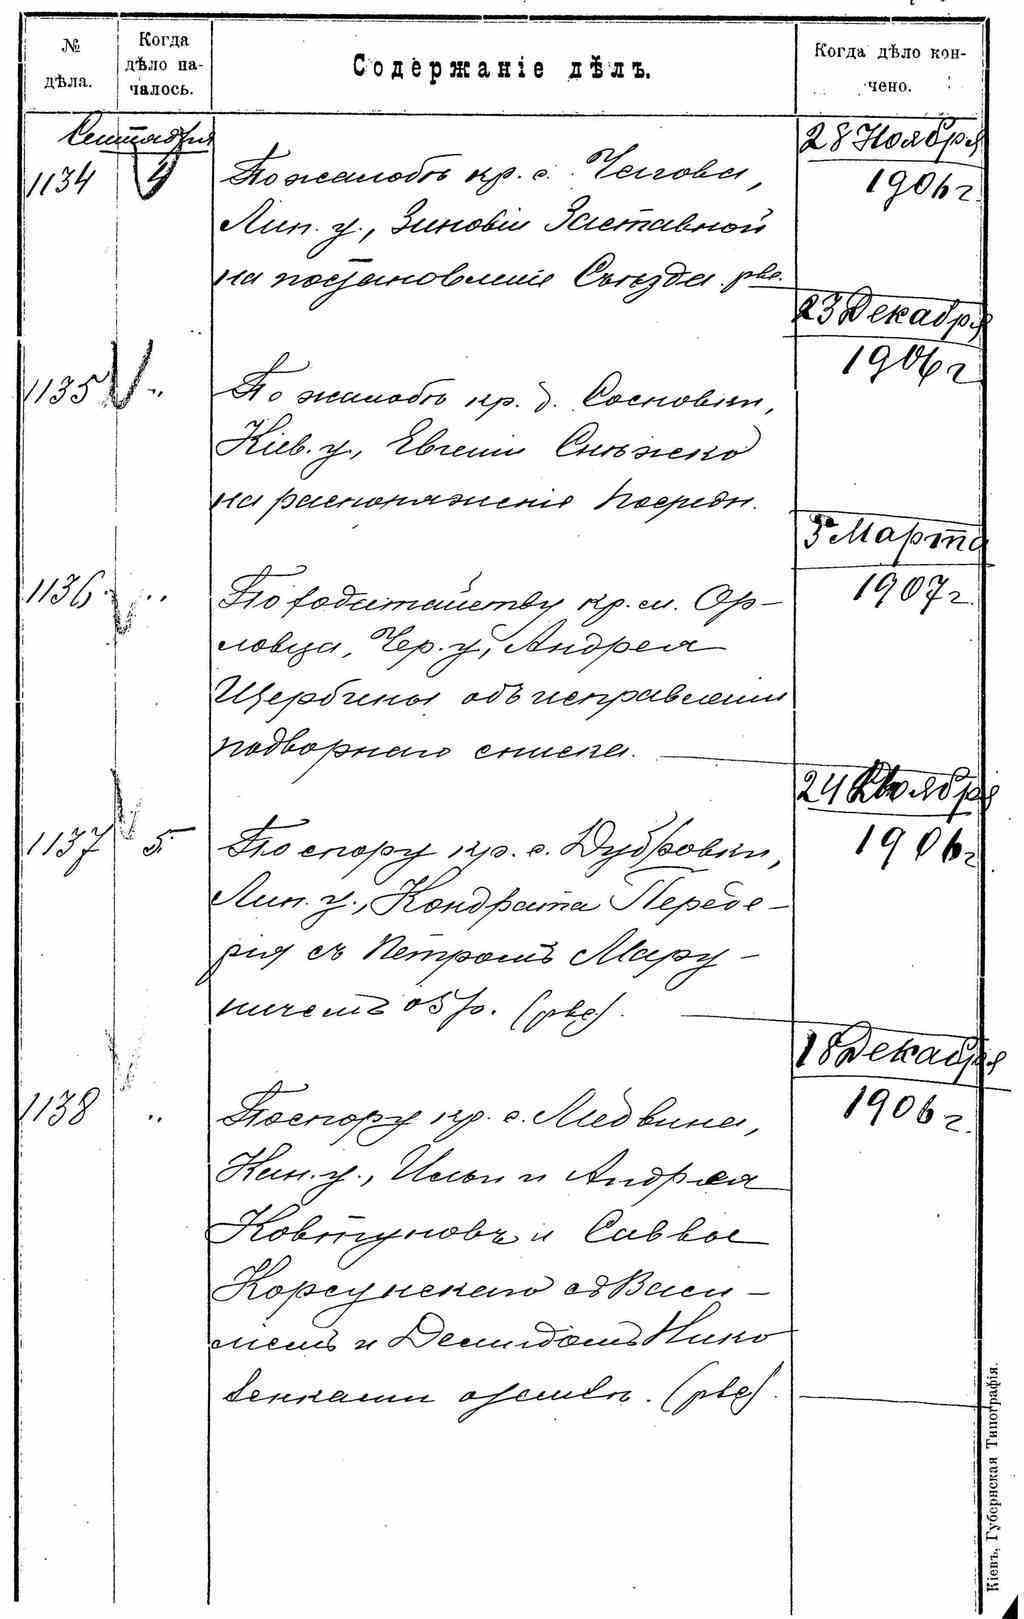 № дѣла.
Когда дѣло началось.
Содержаніе дѣлъ.
Когда дѣло кончено.
Сентября
1134
4
По жалобѣ кр. с. Чагова,
Лип. у., Зиновіи Заставной
на постановленіе Съѣзда рвс.
28 Ноября
1906 г.
1135
"
По жалобѣ кр. д. Сосновки,
Кіев. у., Евгеніи Снѣжко
на распоряженіе Посредн.
23 Декабря
1906 г
1136
"
По ходатайству кр. м. Ор-
ловца, Чер. у., Андрея
Щербины объ исправленіи
подворнаго списка.
5 Марта
1907 г.
1137
5
По спору кр. с. Дубровки,
Лип. у., Кондрата Перебе-
рія съ Петромъ Мару-
ничемъ о 5 р. (рвс).
24 Ноября
1906 г
1138
"
По спору кр. с. Медвина,
Кан. у., Ильи и Андрея
Ковтуновъ и Саввы
Корсунскаго съ Васи-
ліемъ и Демидомъ Нико
венками о землѣ. (рвс).
18 Декабря
1906 г.
Кіевъ, Губернская Типографія.